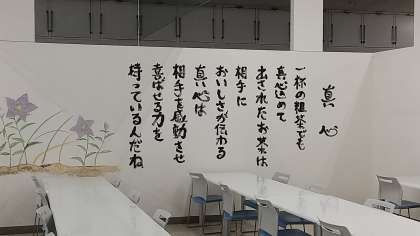 真心
一杯の粗茶でも
真心込めて
出されたお茶は
相手に
おいしさが伝わる
真心は
相手を感動させ
喜ばせる力を
持っているんだね